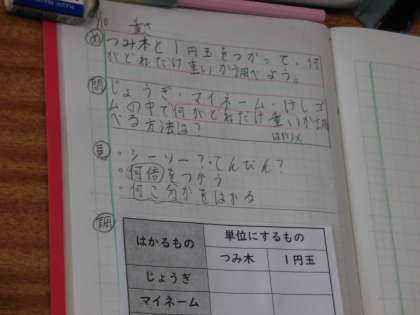 10 重さ
め つみ木と1円玉をつかって、何
がどれだけ重いか調べよう。
問 じょうぎ・マイネーム・けしゴ
ムの中で何がどれだけ重いか調
べる方法は?
見 ・シーソー?てんびん?
・何倍をつかう
・何こ分かをはかる
調
はかるもの 単位にするもの
つみ木 1円玉
じょうぎ
マイネーム